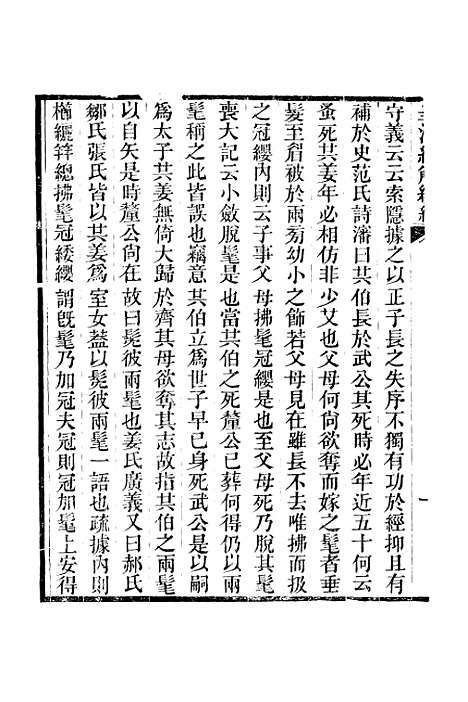 皇清經解續編
一
守義云云索隱據之以正子長之失序不獨有功於經抑且有
補於史范氏詩瀋曰共伯長於武公其死時必年近五十何云
蚤死共姜年必相仿非少艾也父母何尙欲奪而嫁之髦者垂
髮至眉被於兩旁幼小之飾若父母見在雖長不去唯拂而扱
之冠纓內則云子事父母拂髦冠纓是也至父母死乃脫其髦
喪大記云小斂脫髦是也當共伯之死釐公已葬何得仍以兩
髦稱之此皆誤也竊意共伯立爲世子早已身死武公是以嗣
爲太子共姜無倚大歸於齊其母欲奪其志故指共伯之兩髦
以自矢是時釐公尙在故曰髧彼兩髦也姜氏廣義又曰郝氏
鄒氏張氏皆以共姜爲室女葢以髧彼兩髦一語也疏據內則
櫛纚筓總拂髦冠緌纓謂旣髦乃加冠夫冠則冠加髦上安得